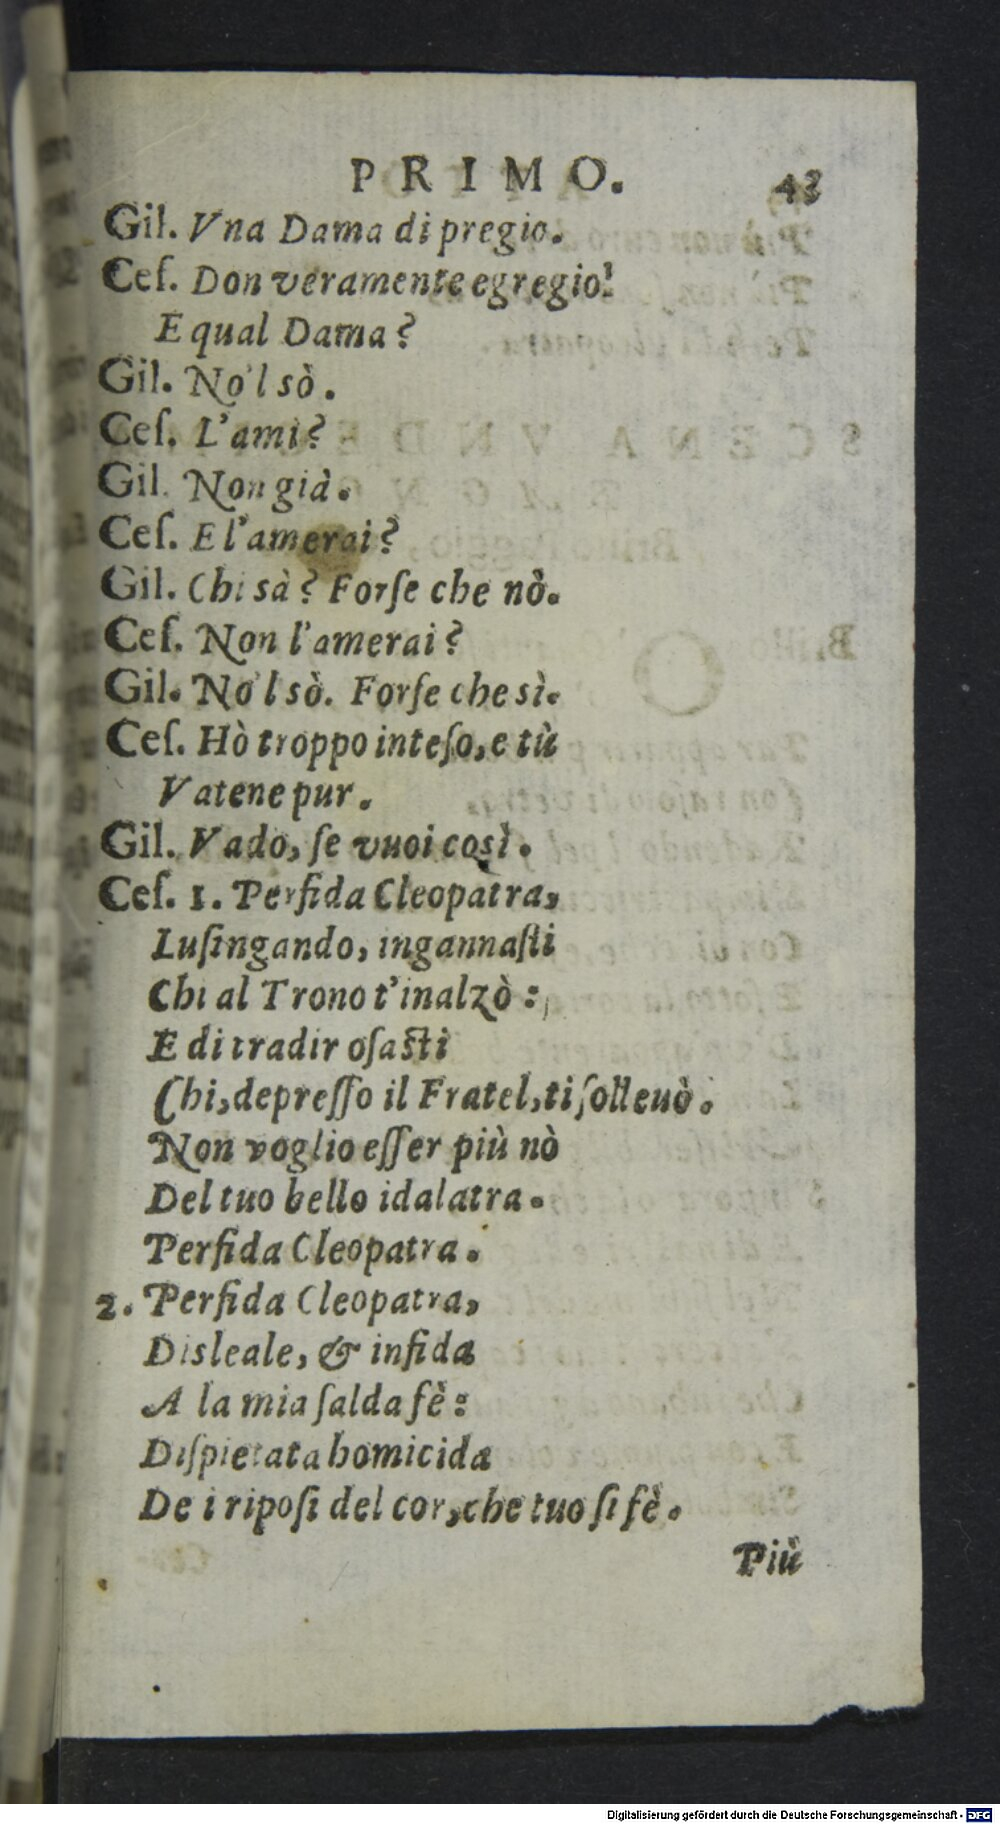 PRIMO. 43
Gil. Vna Dama di pregio.
Ceſ. Don veramente egregio!
E qual Dama?
Gil. No'l sò.
Ceſ. L'ami?
Gil. Non già.
Ceſ. E l'amerai?
Gil. Chi sà? Forſe che nò.
Ceſ. Non l'amerai?
Gil. No'l sò. Forſe che sì.
Ceſ. Hò troppo inteſo, e tù
Vatene pur.
Gil. Vado, ſe vuoi così.
Ceſ. 1. Perfida Cleopatra,
Luſingando, ingannaſti
Chi al Trono t'inalzò:
E di tradir oſasti
Chi, depreſſo il Fratel, ti ſolleuò.
Non voglio eſſer più nò
Del tuo bello idalatra.
Perfida Cleopatra.
2. Perfida Cleopatra,
Disleale, & infida
A la mia ſalda fè:
Diſpietata homicida
De i ripoſi del cor, che tuo ſi fè.
Più
Digitalisierung gefördert durch die Deutsche Forschungsgemeinschaft - DFG